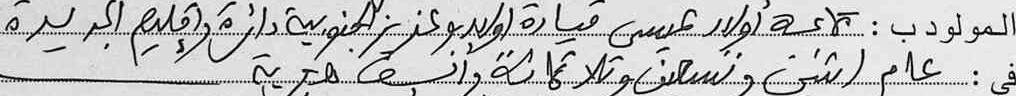 المولود ب : جماعة أولاد عيسى قيادة أولاد بوعزيز الجنوبية دائرة وإقليم الجديدة
في : عام اثنين وتسعين وثلاثمائة وألف هجرية